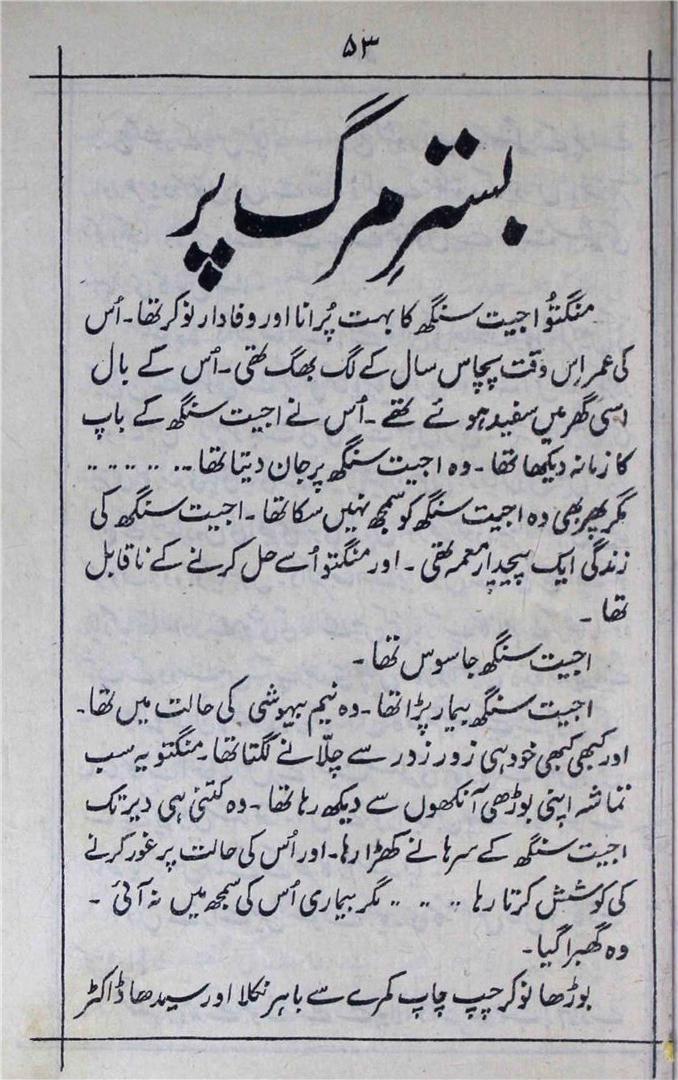 ۵۳
بسترِ مرگ پر
منگتوُ اجیت سنگھ کا بہت پُرانا اور وفادار نوکر تھا۔ اُس
کی عمر اِس وقت پچاس سال کے لگ بھگ تھی۔ اُس کے بال
اسی گھر میں سفید ہوئے تھے۔ اُس نے اجیت سنگھ کے باپ
کا زمانہ دیکھا تھا۔ وہ اجیت سنگھ پر جان دیتا تھا۔۔ ۔۔ ۔۔ ۔۔
مگر پھر بھی وہ اجیت سنگھ کو سمجھ نہیں سکا تھا۔ اجیت سنگھ کی
زندگی ایک پیچیدار معمہ تھی۔ اور منگتو اُسے حل کرنے کے ناقابل
تھا۔
اجیت سنگھ جاسوس تھا۔
اجیت سنگھ بیمار پڑا تھا۔ وہ نیم بیہوشی کی حالت میں تھا۔
اور کبھی کبھی خود ہی زور زور سے چلّانے لگتا تھا۔ منگتو یہ سب
تماشہ اپنی بوڑھی آنکھوں سے دیکھ رہا تھا۔ وہ کتنی ہی دیر تک
اجیت سنگھ کے سرہانے کھڑا رہا۔ اور اُس کی حالت پر غور کرنے
کی کوشش کرتا رہا ۔۔ ۔۔ ۔۔ مگر بیماری اُس کی سمجھ میں نہ آئی۔
وہ گھبرا گیا۔
بوڑھا نوکر چپ چاپ کمرے سے باہر نکلا اور سیدھا ڈاکٹر